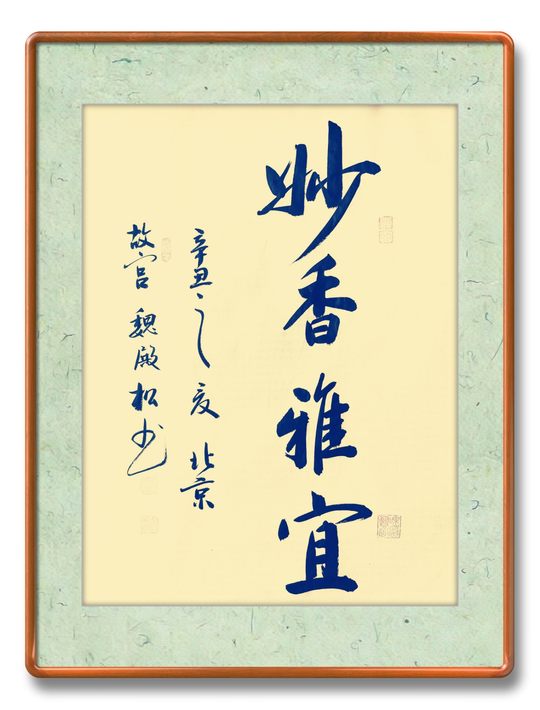 妙香雅宜
辛丑之夏北京
故宫魏殿松书